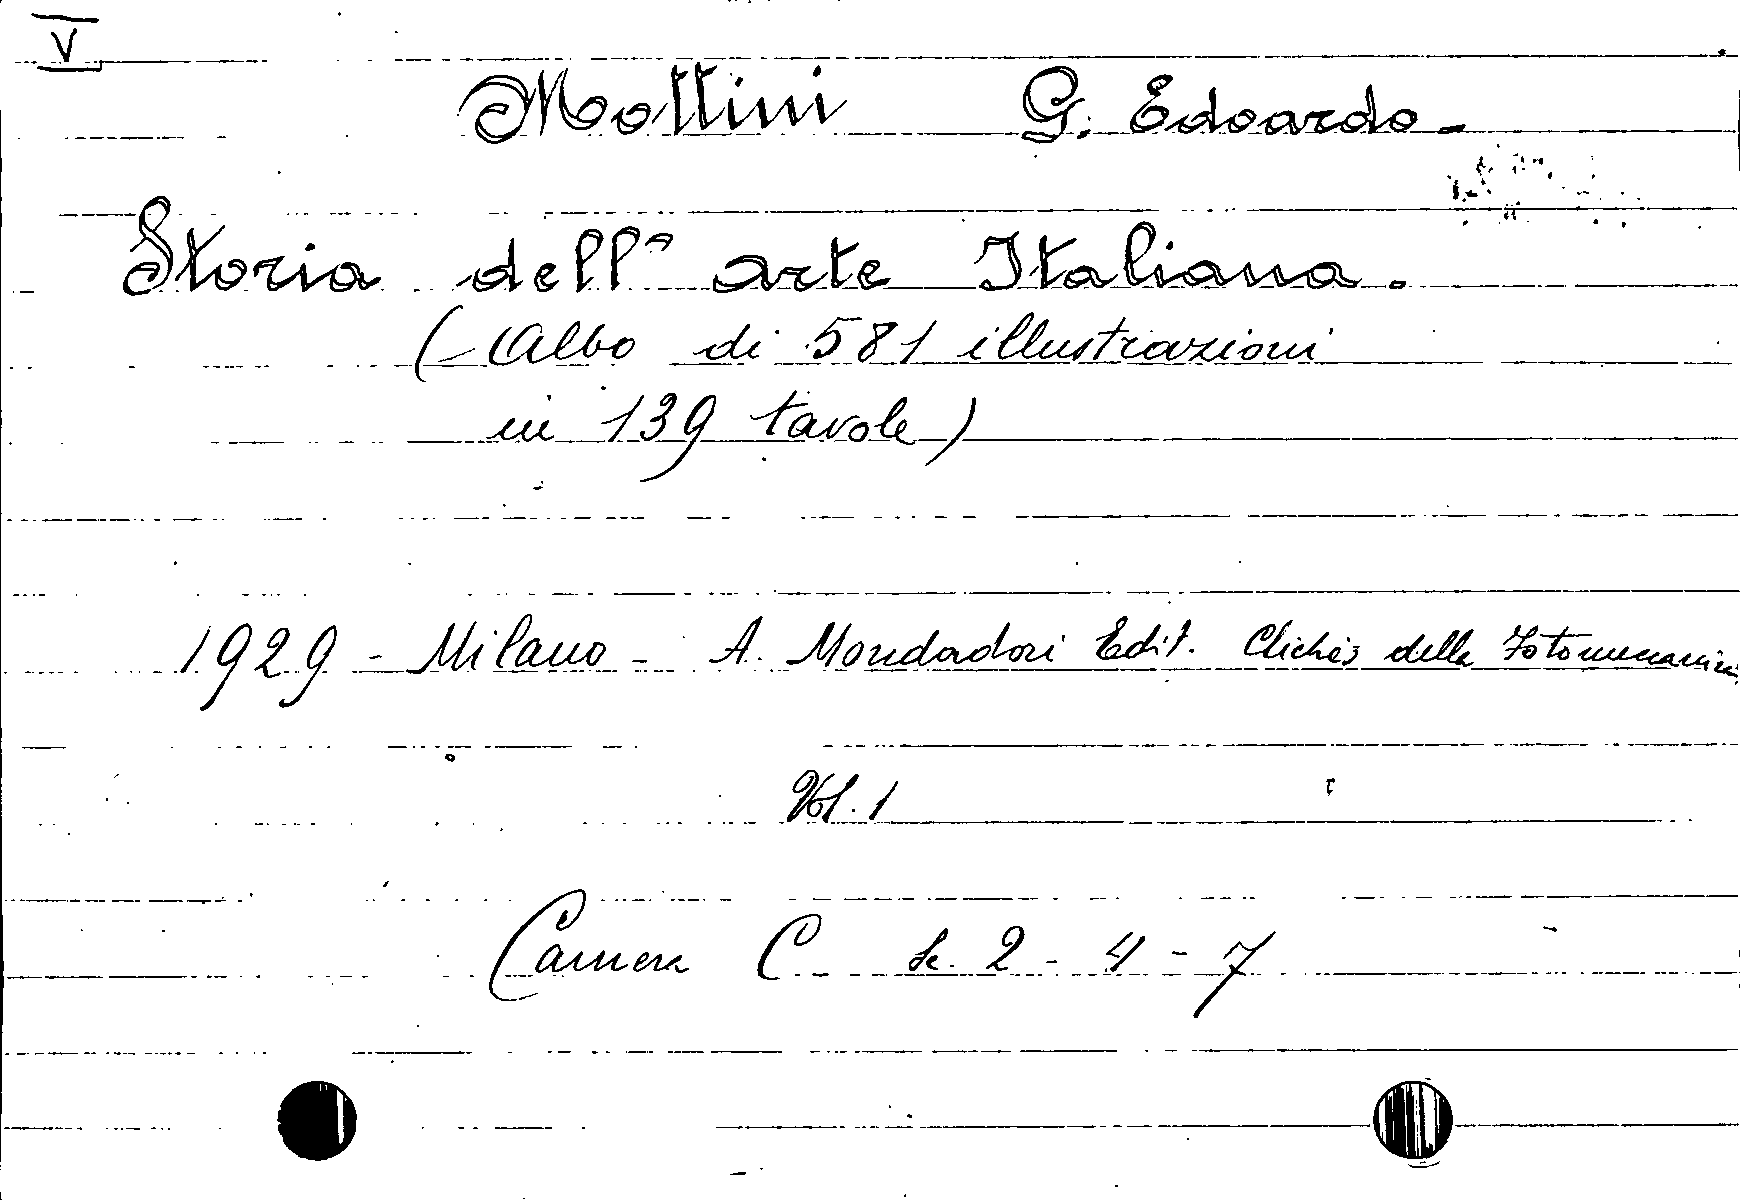 V
Mottini G. Edoardo -
Storia dell' arte Italiana.
(Albo di 581 illustrazioni
in 139 tavole)
1929 - Milano - A. Mondadori Edit. Clichés della
Vol. 1
Camera C - Sc. 2 - 4 - 7